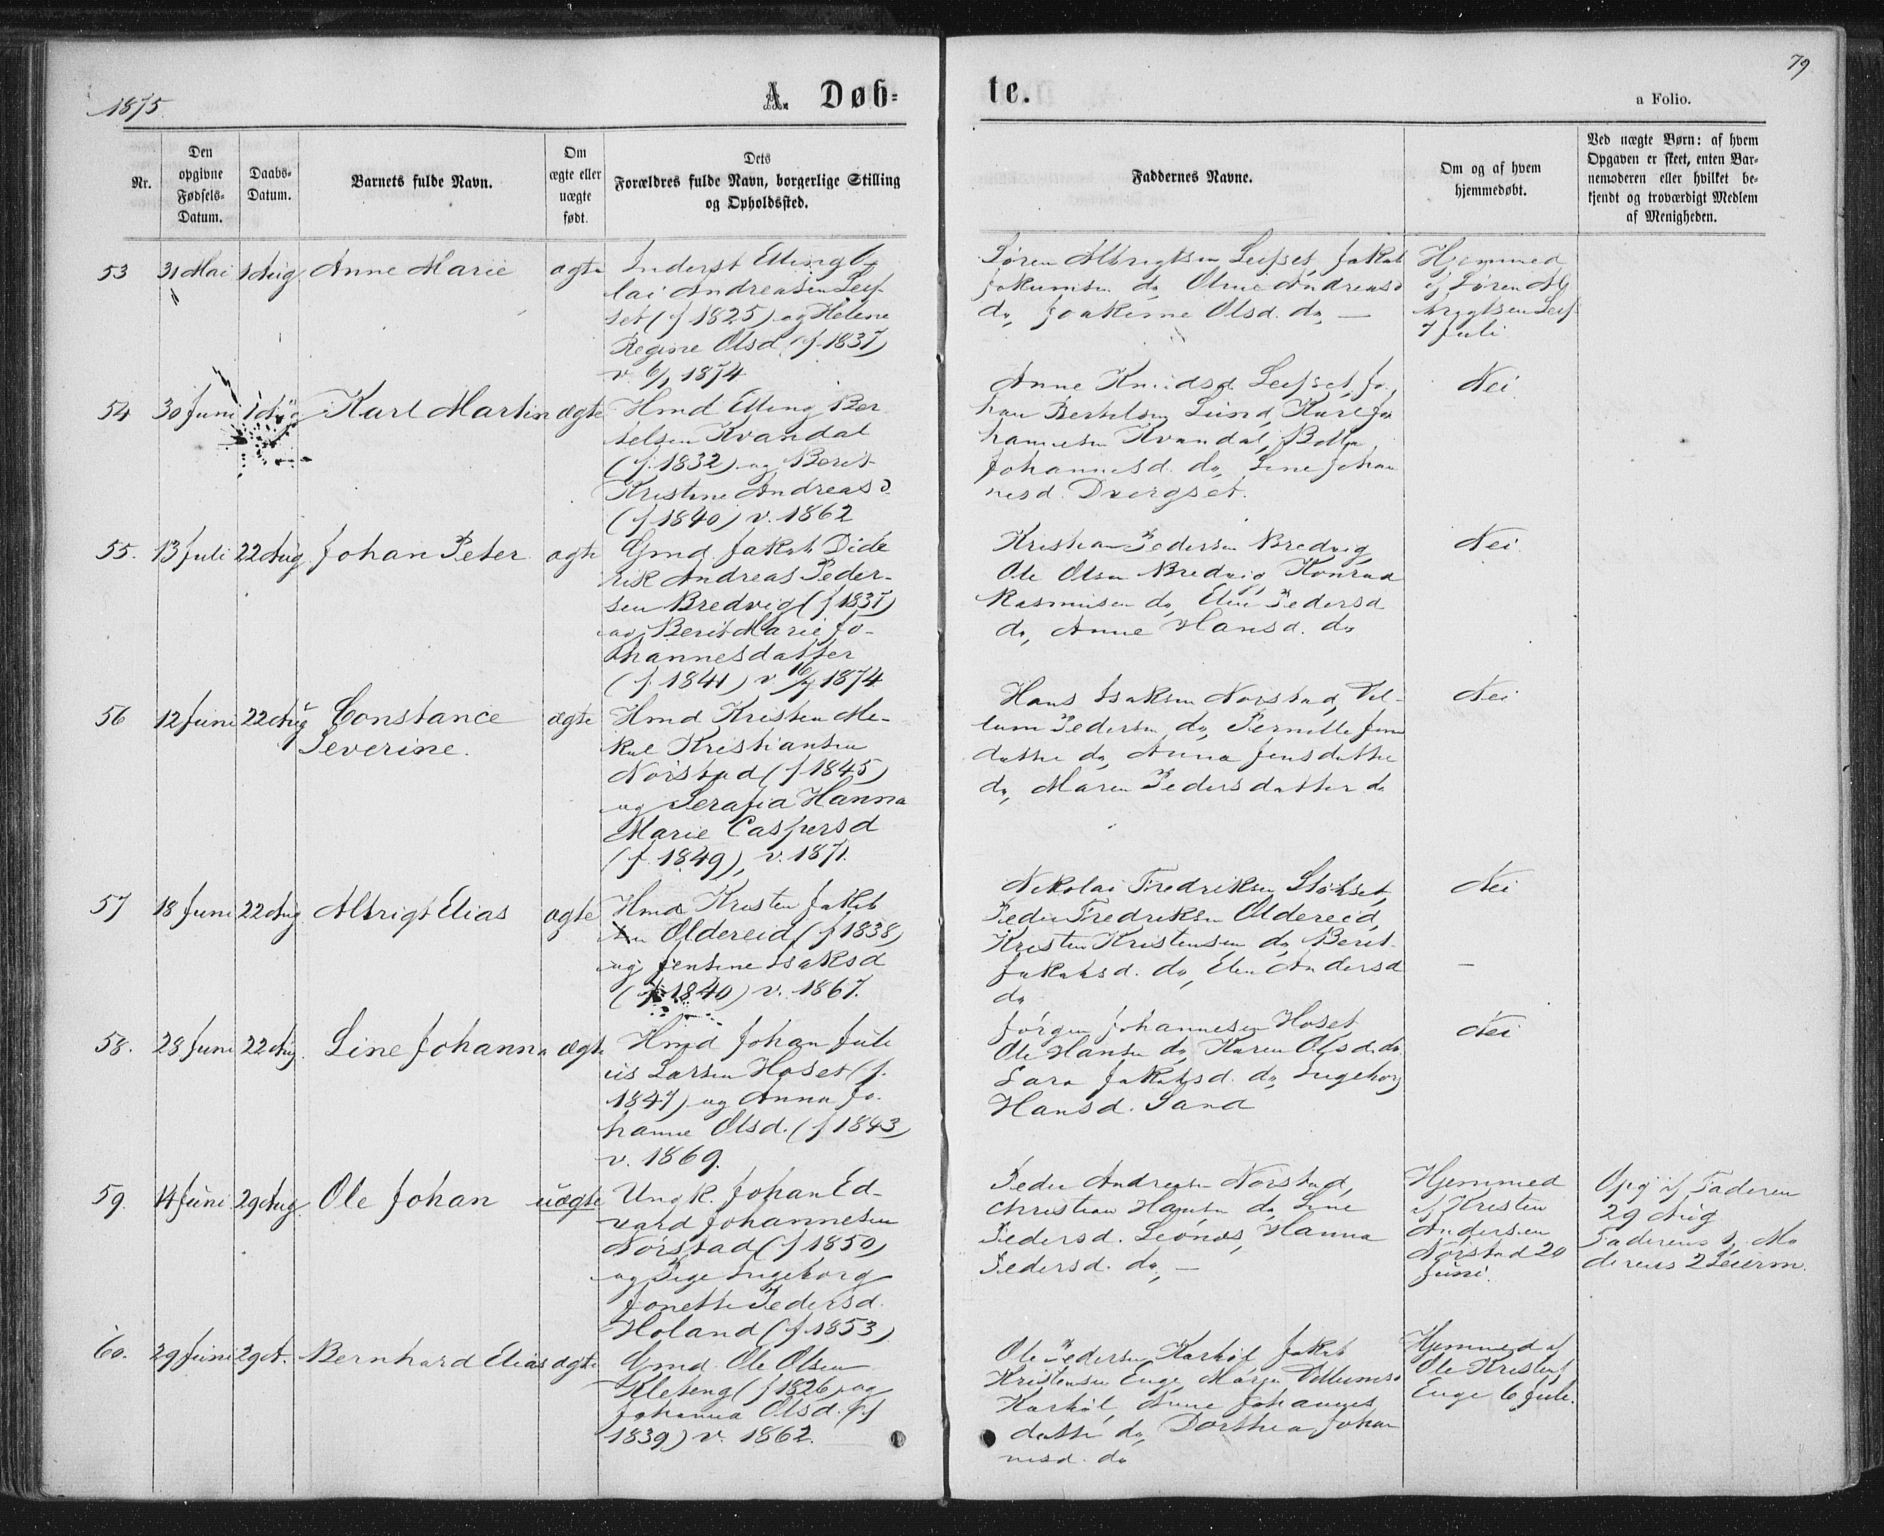 1875
A. Døb=
te.
79
a Folio.
Nr.
Den opgivne Fødsels-Datum.
Daabs-Datum.
Barnets fulde Navn.
Om ægte eller uægte født.
Dets Forældres fulde Navn, borgerlige Stilling og Opholdssted.
Faddernes Navne.
Om og af hvem hjemmedøbt.
Ved uægte Børn: af hvem Opgaven er skeet, enten Barnemoderen eller hvilket bekjendt og troværdigt Medlem af Menigheden.
53 31 Mai 1 Aug Anne Marie ægte
Inderst Elling
lai Andreassen Leif-
set (f 1825) og Helene
Regine Olsd. (f. 1837)
v. 6/1 1874
Søren Albrigtsen Leifset, Jakob
Jakumsen do, Oline Andreasd
do, Joakime Olsd. do, —
Hjemmed
af Søren Al
brigtsen Leifs
7 Juli
54 30 Juni 1 Aug Karl Martin ægte
Hmd Elling Ber
telsen Kvandal
(f. 1832) og Berit
Kristine Andreasd.
(f. 1840) v. 1862
Anne Knudsd. Leifset, Jo,
han Bertelsen Lund, Karl Jo
hannesen Kvandal,
Johannesd. do, Line Johan
nesd. Dvergset.
Nei
55. 13 Juli 22 Aug Johan Peter ægte
Gmd. Jakob Dide
rik Andreas Peder-
sen Bredvig (f 1837)
og Berit Marie Jo-
hannesdatter
(f. 1841) v. 1874
Kristian Pedersen Bredvig,
Ole Olsen Bredvig, Konrad
Rasmusen do, Elen Pedersd
do, Anne Hansd. do
Nei
56 12 Juni 22 Aug Constance
Severine. ægte
Hmd Kristen Me-
kal Kristiansen
Norstad (f. 1845)
og Serafia Hanna
Marie Caspersd
(f. 1849), v. 1871.
Hans Isaksen Norstad, Vil-
lum Pedersen do, Pernille Jens
datter do, Anna Jensdatter
do, Maren Pedersdatter do
Nei
57 18 Juni 22 Aug. Albrigt Elias ægte
Hmd Kristen Jakob
sen Oldereid (f 1838)
og Jensine Isaksd
(f. 1840) v. 1867.
Nikolai Fredriksen Støbset,
Peder Fredriksen Oldereid,
Kristen Kristensen do, Berit
Jakobsd. do, Elen Andersd
do
Nei
—
58. 28 Juni 22 Aug. Line Johanna ægte
Hmd Johan Juli
us Larsen Hoset (f.
1847) og Anna Jo-
hanne Olsd. (f 1843)
v. 1869.
Jørgen Johannesen Hoset,
Ole Hansen do, Karen Olsd. do
Sara Jakobsd. do, Ingeborg
Hansd. Sand
Nei
59. 14 Juni 29 Aug. Ole Johan uægte
Ungk. Johan Ed-
vard Johannesen
Norstad (f 1850)
og Pige Ingeborg
Jonette Pedersd.
Holand (f 1853)
Peder Andreas Norstad,
Christian Hansen do, Line
Pedersd. Leones, Hanna
Pedersd. do, —
Hjemmed
af Kristen
Andersen
Norstad 20
Juni.
Opg af Faderen
29 Aug
Faderens 1, Mo
derens 2 Leierm.
60. 29 Juni 29 A. Bernhard Elias ægte
Gmd. Ole Olsen
Kleteng (f 1826) og
Johanna Olsd. (f
1839) v. 1862.
Ole Pedersen Karhol, Jakob
Kristensen Enge, Maren Villumsd
Karhol, Anne Johannes
datter do, Dorthea Johan
nesd. do
Hjemmed af
Ole Kristens
Enge 6 Juli.